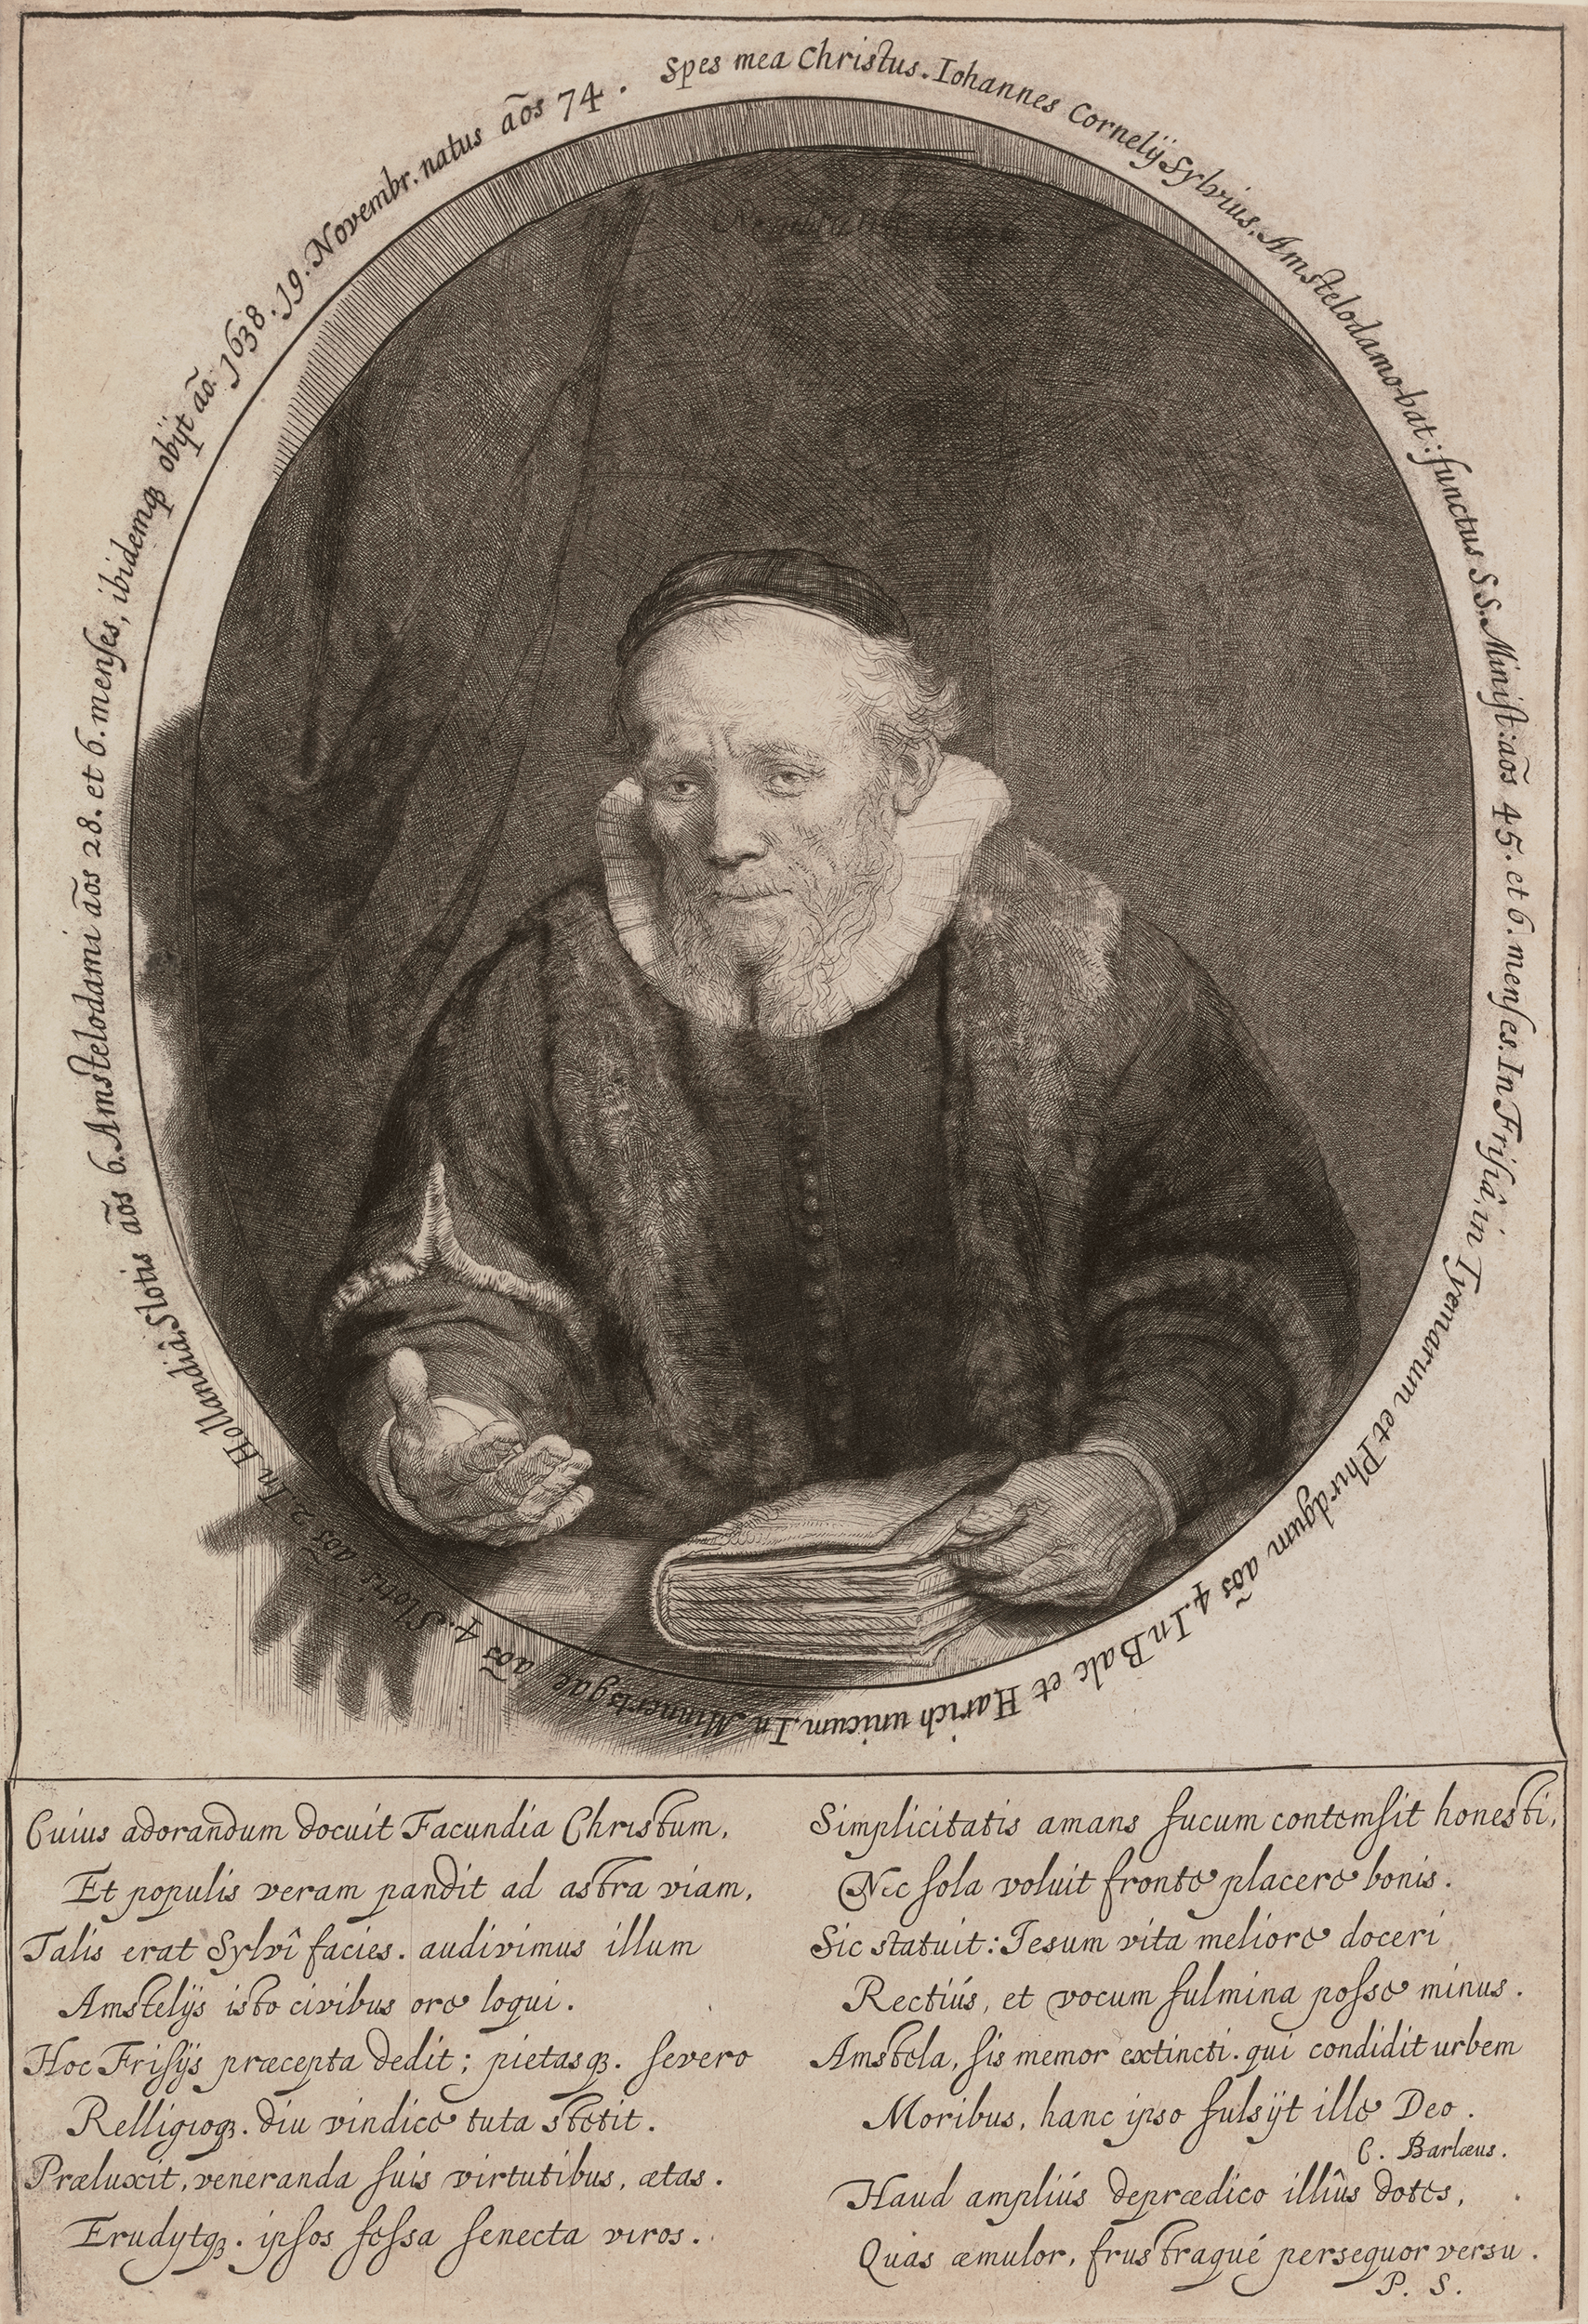 Spes mea Christus. Iohannes Cornelÿ Sylvius, Amstelodamo-bat: functus S.S. Minist: aõs 45. et 6. menses. In Frisiâ, in Tyemarum et Phirdgum aõs 4. In Balc et Harich unicum. In Minnertsgae aõs 4. Slotis aõs 2. In Hollandiâ, Slotis aõs 6. Amstelodami aõs 28. et 6. menses, ibidemqꝫ obÿt aõ. 1638. 19. Novembr. natus aõs 74.
Cuius adorandum docuit Facundia Christum,
Et populis veram pandit ad astra viam,
Talis erat Sylvî facies. audivimus illum
Amstelÿs isto civibus ore loqui.
Hoc Frisÿs præcepta dedit; pietasqꝫ. severo
Relligioqꝫ. diu vindice tuta stetit.
Præluxit, veneranda suis virtutibus, ætas.
Erudytqꝫ. ipsos fessa senecta viros.
Simplicitatis amans fucum contemsit honesti,
Nec sola voluit fronte placere bonis.
Sic statuit: Iesum vita meliore doceri
Rectiús, et vocum fulmina posse minus.
Amstela, sis memor extincti. qui condidit urbem
Moribus, hanc ipso fulsÿt ille Deo.
C. Barlæus.
Haud ampliús deprædico illîus dotes,
Quas æmulor, frustraqué persequor versu.
P. S.